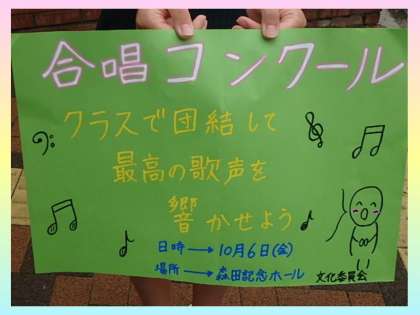 合唱コンクール
クラスで団結して
最高の歌声を
響かせよう
日時→10月6日(金)
場所→森田記念ホール
文化委員会